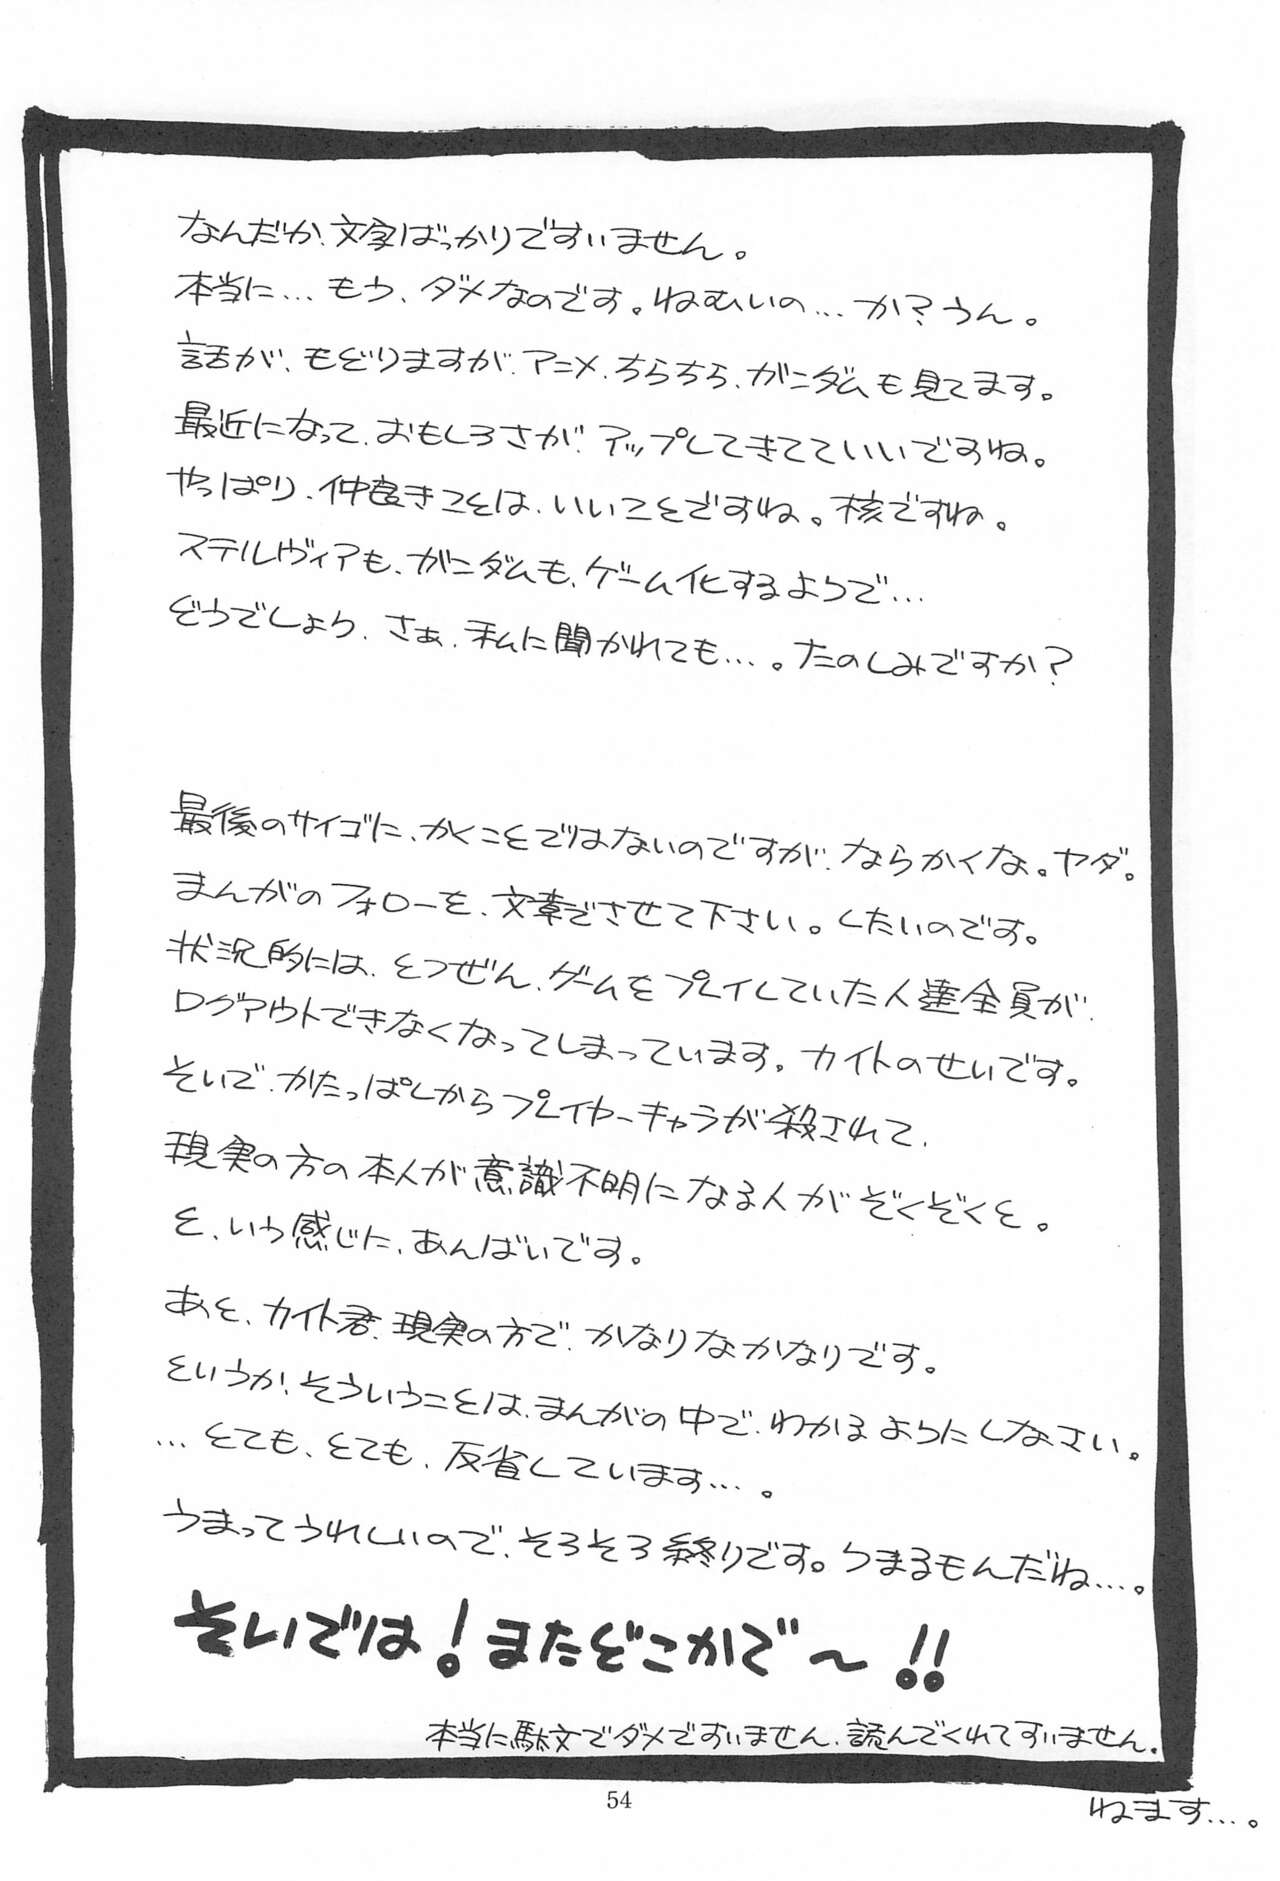 なんだか、文字ばっかりですいません。
本当に…もう、ダメなのです。ねむいの…か？うん。
話が、もどりますが、アニメ、ちらちら、ガンダムも見てます。
最近になって、おもしろさが、アップしてきてていいですね。
やっぱり、仲良きことは、いいことですね。核ですね。
ステルヴィアも、ガンダムも、ゲーム化するようで…
どうでしょう、さぁ、私に聞かれても…。たのしみですか？
最後のサイゴに、かくことではないのですが、ならかくな。ヤダ。
まんがのフォローを、文章でさせて下さい。したいのです。
状況的には、とつぜん、ゲームをプレイしていた人達全員が、
ログアウトできなくなってしまっています。カイトのせいです。
そいで、かたっぱしからプレイヤーキャラが殺されて、
現実の方の本人が意識不明になる人がぞくぞくと。
と、いう感じに、あんばいです。
あと、カイト君、現実の方で、かなりなかなりです。
というか、そういうことは、まんがの中で、わかるようにしなさい。
…とても、とても、反省しています…。
うまってうれしいので、そろそろ終りです。うまるもんだね…。
そいでは！またどこかで〜!!
本当に駄文でダメですいません、読んでくれてすいません。
54
ねます…。